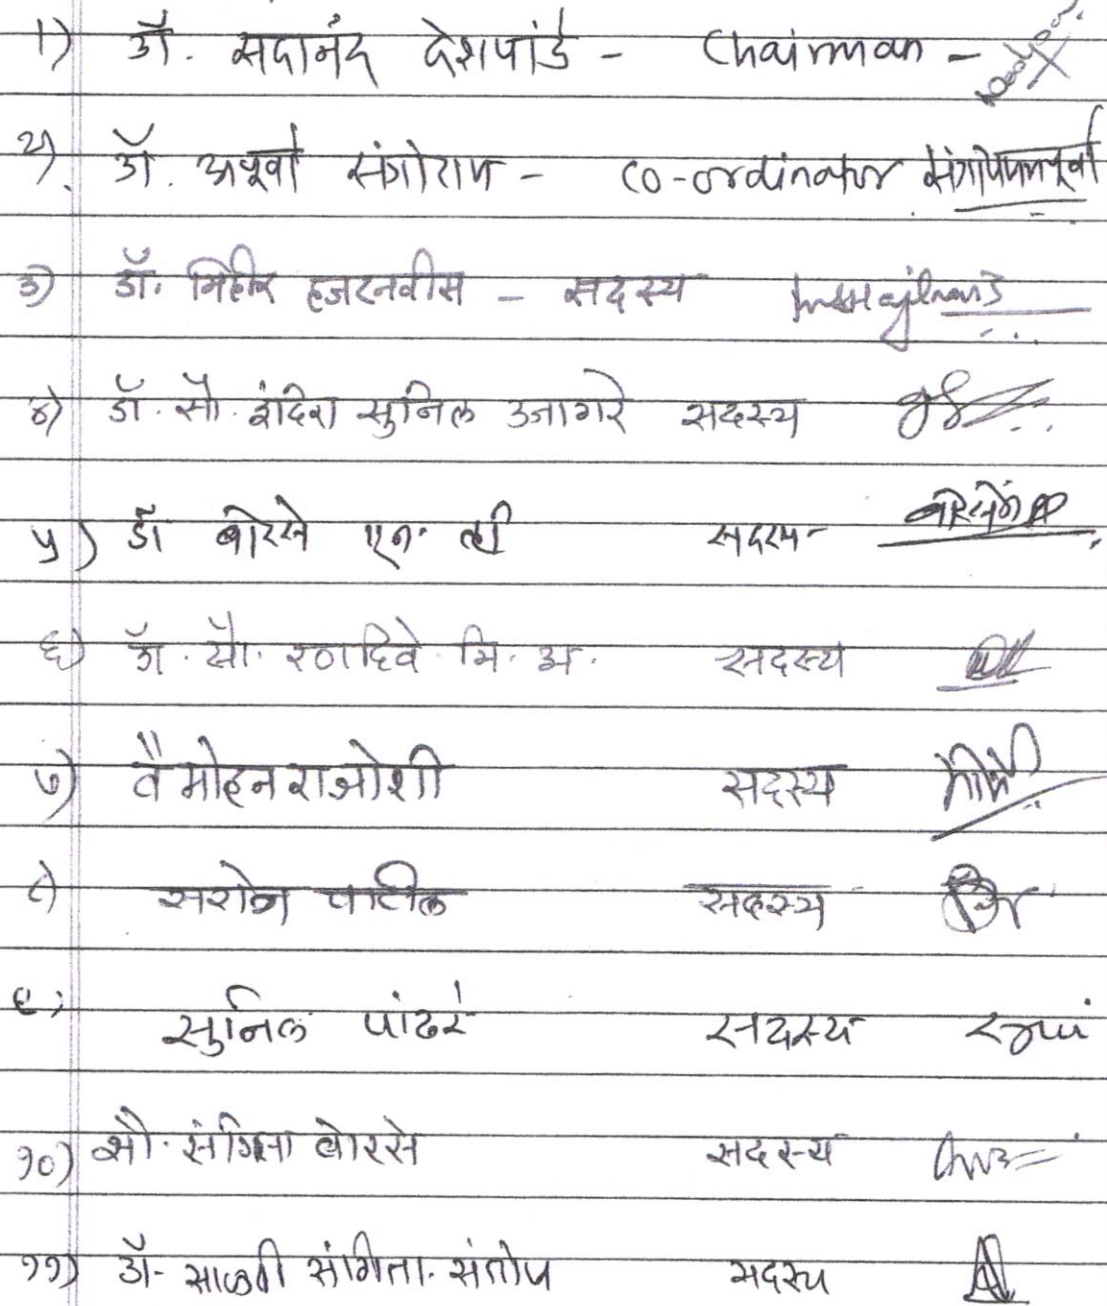 १) डॉ. सदानंद देशपांडे - Chairman -
२) डॉ. अपूर्वा संगोराम - co-ordinator संगोरामअपूर्वा
३) डॉ. मिहीर हजरनवीस - सदस्य
४) डॉ. सौ. इंदिरा सुनिल उजागरे सदस्य
५) डॉ बोरसे एन. व्ही सदस्य
६) डॉ. सौ. रणदिवे. मि. अ. सदस्य
७) वै मोहन रा जोशी सदस्य
८) सरोज पाटील सदस्य
९) सुनिल पांढरे सदस्य
१०) सौ. संगिता बोरसे सदस्य
११) डॉ- साळवी संगिता. संतोष सदस्य